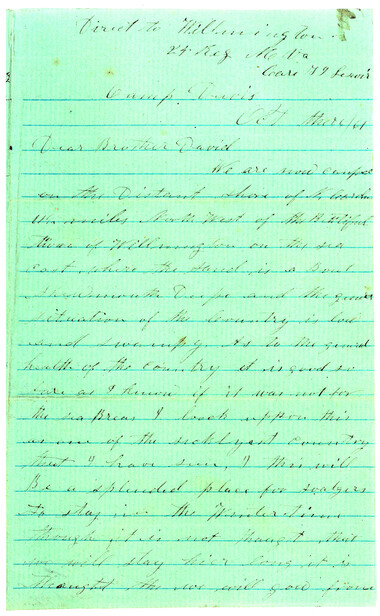 Direct to Willmington
24 Reg N.
Care
Camp Davis
Oct
Dear Brother David
We are now camped
on the Distant Shore of N
miles North West of the
town of Willmington on the sea
cost where the Sand is a Bout
Deape and the genral
situation of the Country is low
and swampy As to the general
health of the country it is good so
fare as I know if it was not for
the sea Breas I look uppon this
as one of the sickleyest country
that I have seen, I this will
Be a splended place for
to stay in the Winter time
though it is not thought that
we will stay hier long it is
thought the we will go